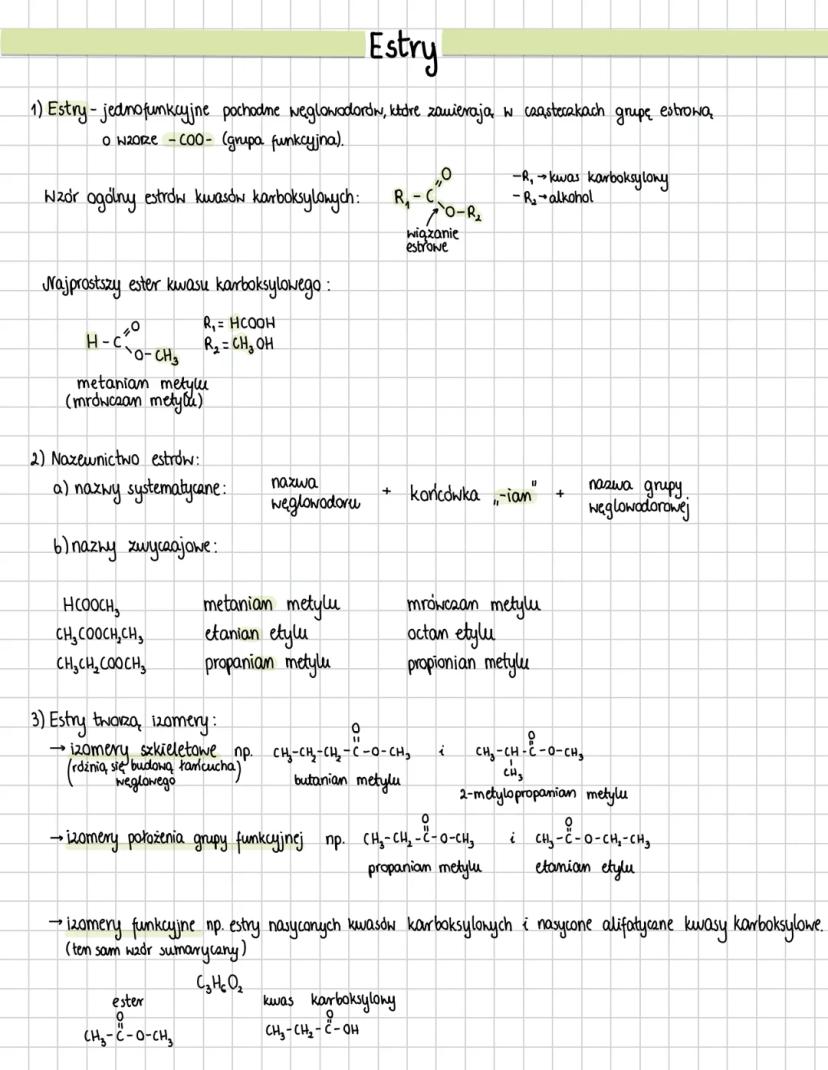 Estry
1) Estry - jednofunkcyjne pochodne węglowodorów, które zawierają w cząsteczkach grupę estrową
o wzorze -COO- (grupa funkcyjna).
Wzór ogólny estrów kwasów karboksylowych: R₁-C O O-R₂
-R₁ → kwas karboksylowy
-R₂ → alkohol
wiązanie
estrowe
Najprostszy ester kwasu karboksylowego:
H-C O O-CH₃
R₁ = HCOOH
R₂ = CH₃OH
metanian metylu
(mrówczan metylu)
2) Nazewnictwo estrów:
a) nazwy systematyczne: nazwa węglowodoru + końcówka „-ian" + nazwa grupy węglowodorowej
b) nazwy zwyczajowe:
HCOOCH₃ metanian metylu mrówczan metylu
CH₃COOCH₂CH₃ etanian etylu octan etylu
CH₃CH₂COOCH₃ propanian metylu propionian metylu
3) Estry tworzą izomery:
→ izomery szkieletowe np. CH₃-CH₂-CH₂-C(=O)-O-CH₃ i CH₃-CH(CH₃)-C(=O)-O-CH₃
(różnią się budową łańcucha węglowego)
butanian metylu
2-metylopropanian metylu
→ izomery położenia grupy funkcyjnej np. CH₃-CH₂-C(=O)-O-CH₃ i CH₃-C(=O)-O-CH₂-CH₃
propanian metylu etanian etylu
→ izomery funkcyjne np. estry nasyconych kwasów karboksylowych i nasycone alifatyczne kwasy karboksylowe.
(ten sam wzór sumaryczny)
C₃H₆O₂
ester kwas karboksylowy
CH₃-C(=O)-O-CH₃ CH₃-CH₂-C(=O)-OH